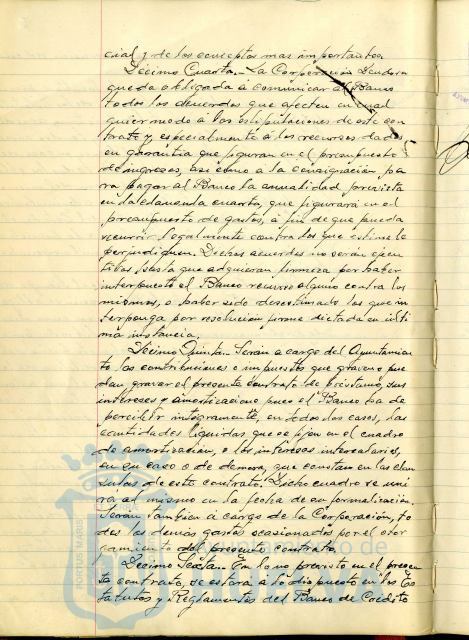 cial y de los conceptos mas importantes
Décimo Cuarta.- La Corporación deudora
queda obligada á comunicar al Banco
todos los acuerdos que afecten en cual
quier modo a las estipulaciones de este con
trato y especialmente á los recursos dados
en garantía que figuran en el presupuesto
de ingresos, asi como a la consignación pa
ra pagar al Banco la anualidad prevista
en la clausula cuarta, que figurará en el
presupuesto de gastos, á fin de que pueda
recurrir legalmente contra los que estime le
perjudiquen. Dichos acuerdos no serán ejecu
tibos hasta que adquieran firmeza por haber
interpuesto el Banco recurso alguno contra los
mismos, o haber sido desestimado los que in
terponga por resolución firme dictada en ulti
ma instancia.
Décimo Quinta.- Serán a cargo del Ayuntamien
to las contribuciones e impuestos que graven o pue
dan gravar el presente contrato de préstamo, sus
intereses y amortización pues el Banco ha de
percibir integramente, en todos los casos, las
cantidades liquidas que se fijen en el cuadro
de amortización, o los intereses intercalarios,
en su caso o de demora, que constan en las clau
sulas de este contrato. Dicho cuadro se uni
rá al mismo en la fecha de su formalización.
Serán tambien á cargo de la Corporación, to
dos los demas gastos ocasionados por el otor
gamiento del presente contrato.
Décimo Sexta.- En lo no previsto en el presen
te contrato, se estará a lo dispuesto en los Es
tatutos y Reglamentos del Banco de Credito
PORTUS MARIS
Ayuntamiento de